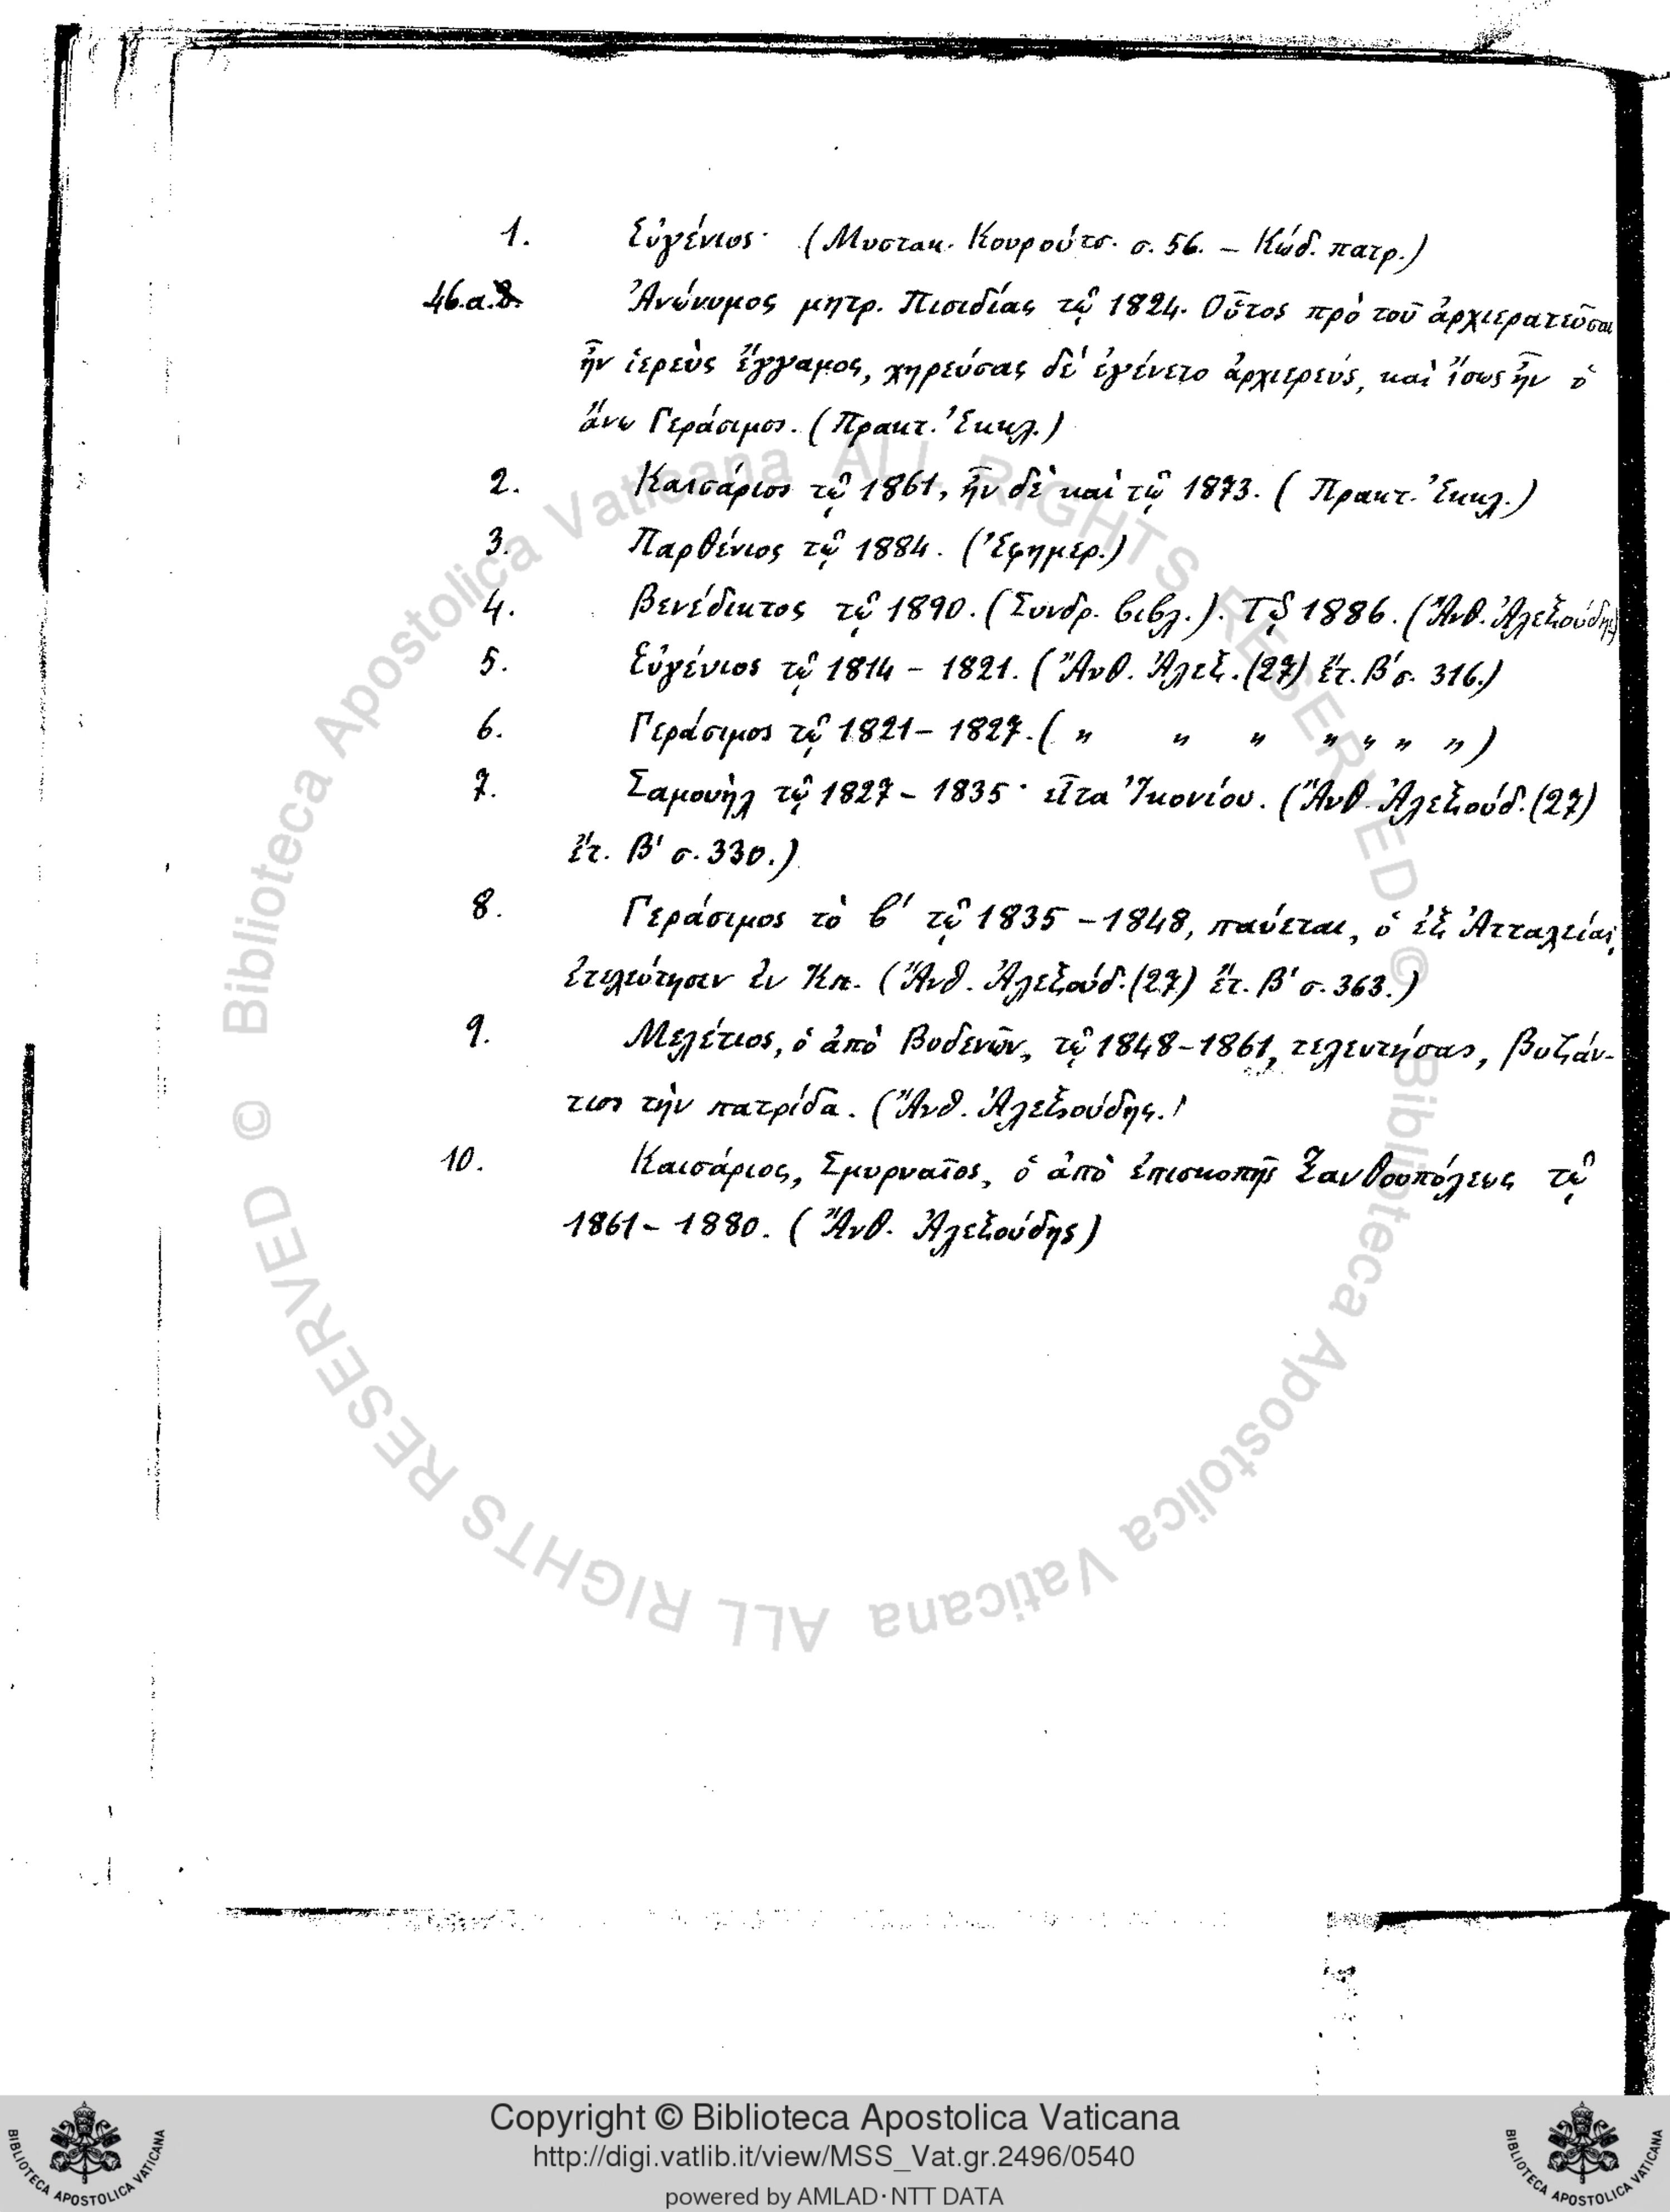 1. Εὐγένιος· (Μυστακ. Κουρούτσ. σ. 56. – Κώδ. πατρ.)
46.α. Ἀνώνυμος μητρ. Πισιδίας τῷ 1824. Οὗτος πρὸ τοῦ ἀρχιερατεῦσαι
ἦν ἱερεὺς ἔγγαμος, χηρεύσας δὲ ἐγένετο ἀρχιερεύς, καὶ ἴσως ἦν ὁ
ἄνω Γεράσιμος. (Πρακτ. Ἐκκλ.)
2. Καισάριος τῷ 1861, ἦν δὲ καὶ τῷ 1873. (Πρακτ. Ἐκκλ.)
3. Παρθένιος τῷ 1884. (Ἐφημερ.)
4. Βενέδικτος τῷ 1890. (Συνδρ. βιβλ.). Τῷ 1886. (Ἄνθ. Ἀλεξούδης)
5. Εὐγένιος τῷ 1814 – 1821. (Ἄνθ. Ἀλεξ. (27) ἔτ. Β′ σ. 316.)
6. Γεράσιμος τῷ 1821 – 1827. ( „ „ „ „ „ „ „ )
7. Σαμουὴλ τῷ 1827 – 1835· εἶτα Ἰκονίου. (Ἄνθ. Ἀλεξούδ. (27)
ἔτ. Β′ σ. 330.)
8. Γεράσιμος τὸ β′ τῷ 1835 – 1848, παύεται, ὁ ἐξ Ἀτταλείας,
ἐτελεύτησεν ἐν Κπ. (Ἄνθ. Ἀλεξούδ. (27) ἔτ. Β′ σ. 363.)
9. Μελέτιος, ὁ ἀπὸ Βοδενῶν, τῷ 1848 – 1861, τελευτήσας, βυζάν-
τιος τὴν πατρίδα. (Ἄνθ. Ἀλεξούδης.)
10. Καισάριος, Σμυρναῖος, ὁ ἀπὸ ἐπισκοπῆς Ξανθουπόλεως τῷ
1861 – 1880. (Ἄνθ. Ἀλεξούδης)
© Biblioteca Apostolica Vaticana ALL RIGHTS RESERVED
© Biblioteca Apostolica Vaticana ALL RIGHTS RESERVED
Copyright © Biblioteca Apostolica Vaticana
http://digi.vatlib.it/view/MSS_Vat.gr.2496/0540
powered by AMLAD·NTT DATA
BIBLIOTECA APOSTOLICA VATICANA
BIBLIOTECA APOSTOLICA VATICANA